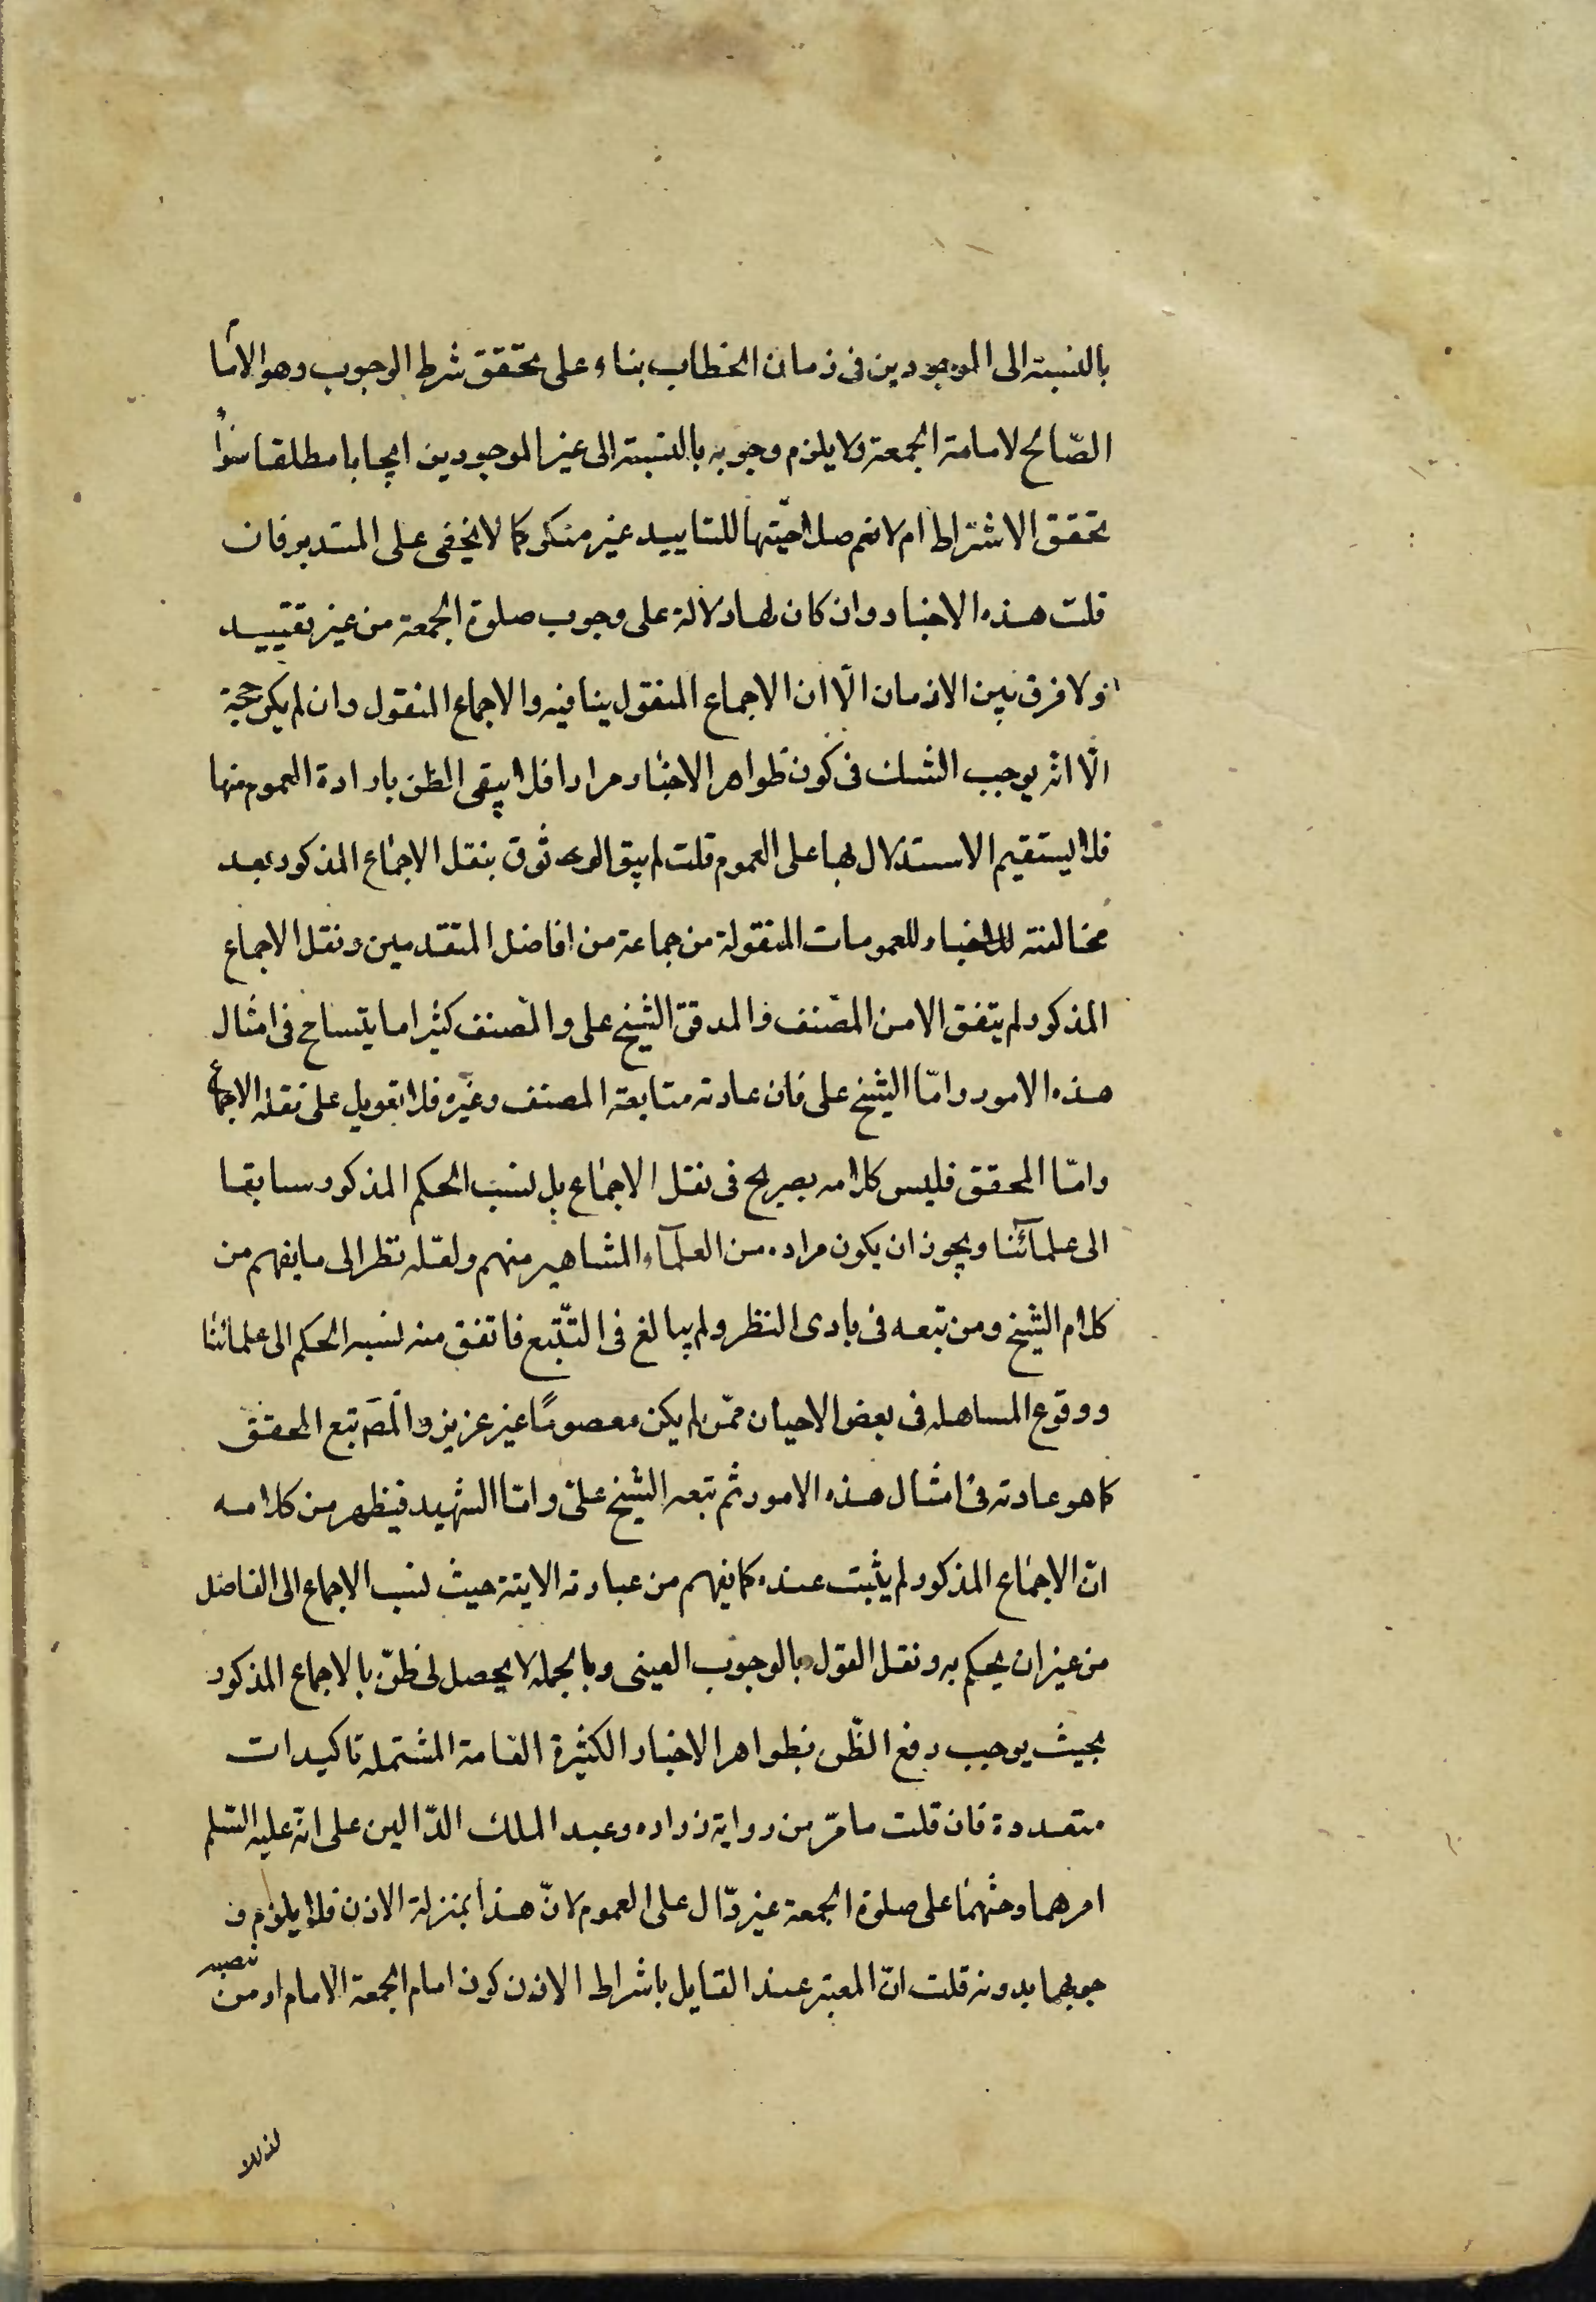 بالنسبة الى الموجودين فى زمان الخطاب بناء على تحقق شرط الوجوب وهو الاما
الصّالح لامامة الجمعة ولا يلزم وجوبه بالنسبة الى غير الموجودين ايجابا مطلقا سواء
تحقق الاشتراط ام لا نعم صلاحيّتها للتاييد غير منكر كما لا يخفى على المتدبر فان
قلت هذه الاخبار وان كان لها دلالة على وجوب صلوة الجمعة من غير تقييد
ولا فرق بين الازمان الّا ان الاجماع المنقول ينافيه والاجماع المنقول وان لم يكن حجة
الّا انّه يوجب الشك فى كون ظواهر الاخبار مرادا فلا يبقى الظن بارادة العموم منها
فلا يستقيم الاستدلال بها على العموم قلت لم يبق الوثوق بنقل الاجماع المذكور بعد
مخالفته للاخبار للعمومات المنقولة من جماعة من افاضل المتقدمين ونقل الاجماع
المذكور لم يتفق الا من المصّنف والمدقق الشيخ على والمصّنف كثيرا ما يتسامح فى امثال
هذه الامور وامّا الشيخ على فان عادته متابعة المصنف وغيره فلا تعويل على نقله الاجماع
وامّا المحقق فليس كلامه بصريح فى نقل الاجماع بل نسب الحكم المذكور سابقا
الى علمآئنا ويجوز ان يكون مراده من العلمآء المشاهير منهم ولعّله نظر الى ما يفهم من
كلام الشيخ ومن تبعه فى بادى النظر ولم يبالغ فى التتّبع فاتفق منه نسبه الحكم الى علمائنا
ووقوع المساهله فى بعض الاحيان ممّن لم يكن معصومًا غير عزيز والمصَ تبع المحقق
كما هو عادته فى امثال هذه الامور ثم تبعه الشيخ علىّ وامّا الشهيد فيظهر من كلامه
انّ الاجماع المذكور لم يثبت عنده كما يفهم من عبارته الاتية حيث نسب الاجماع الى الفاضل
من غير ان يحكم به ونقل القول بالوجوب العينى وبالجمله لا يحصل لى ظنّ بالاجماع المذكور
بحيث يوجب رفع الظّن بظواهر الاخبار الكثيرة العامة المشتمله تاكيدات
متعددة فان قلت ما مرّ من رواية زراره وعبد الملك الدّالين على انّه عليه السّلم
امرهما وحثهما على صلوة الجمعة غير دّال على العموم لانّ هذا بمنزلة الاذن فلا يلزم و
جوبهما بدونه قلت انّ المعتبر عند القايل باشراط الاذن كون امام الجمعة الامام او من نصبه